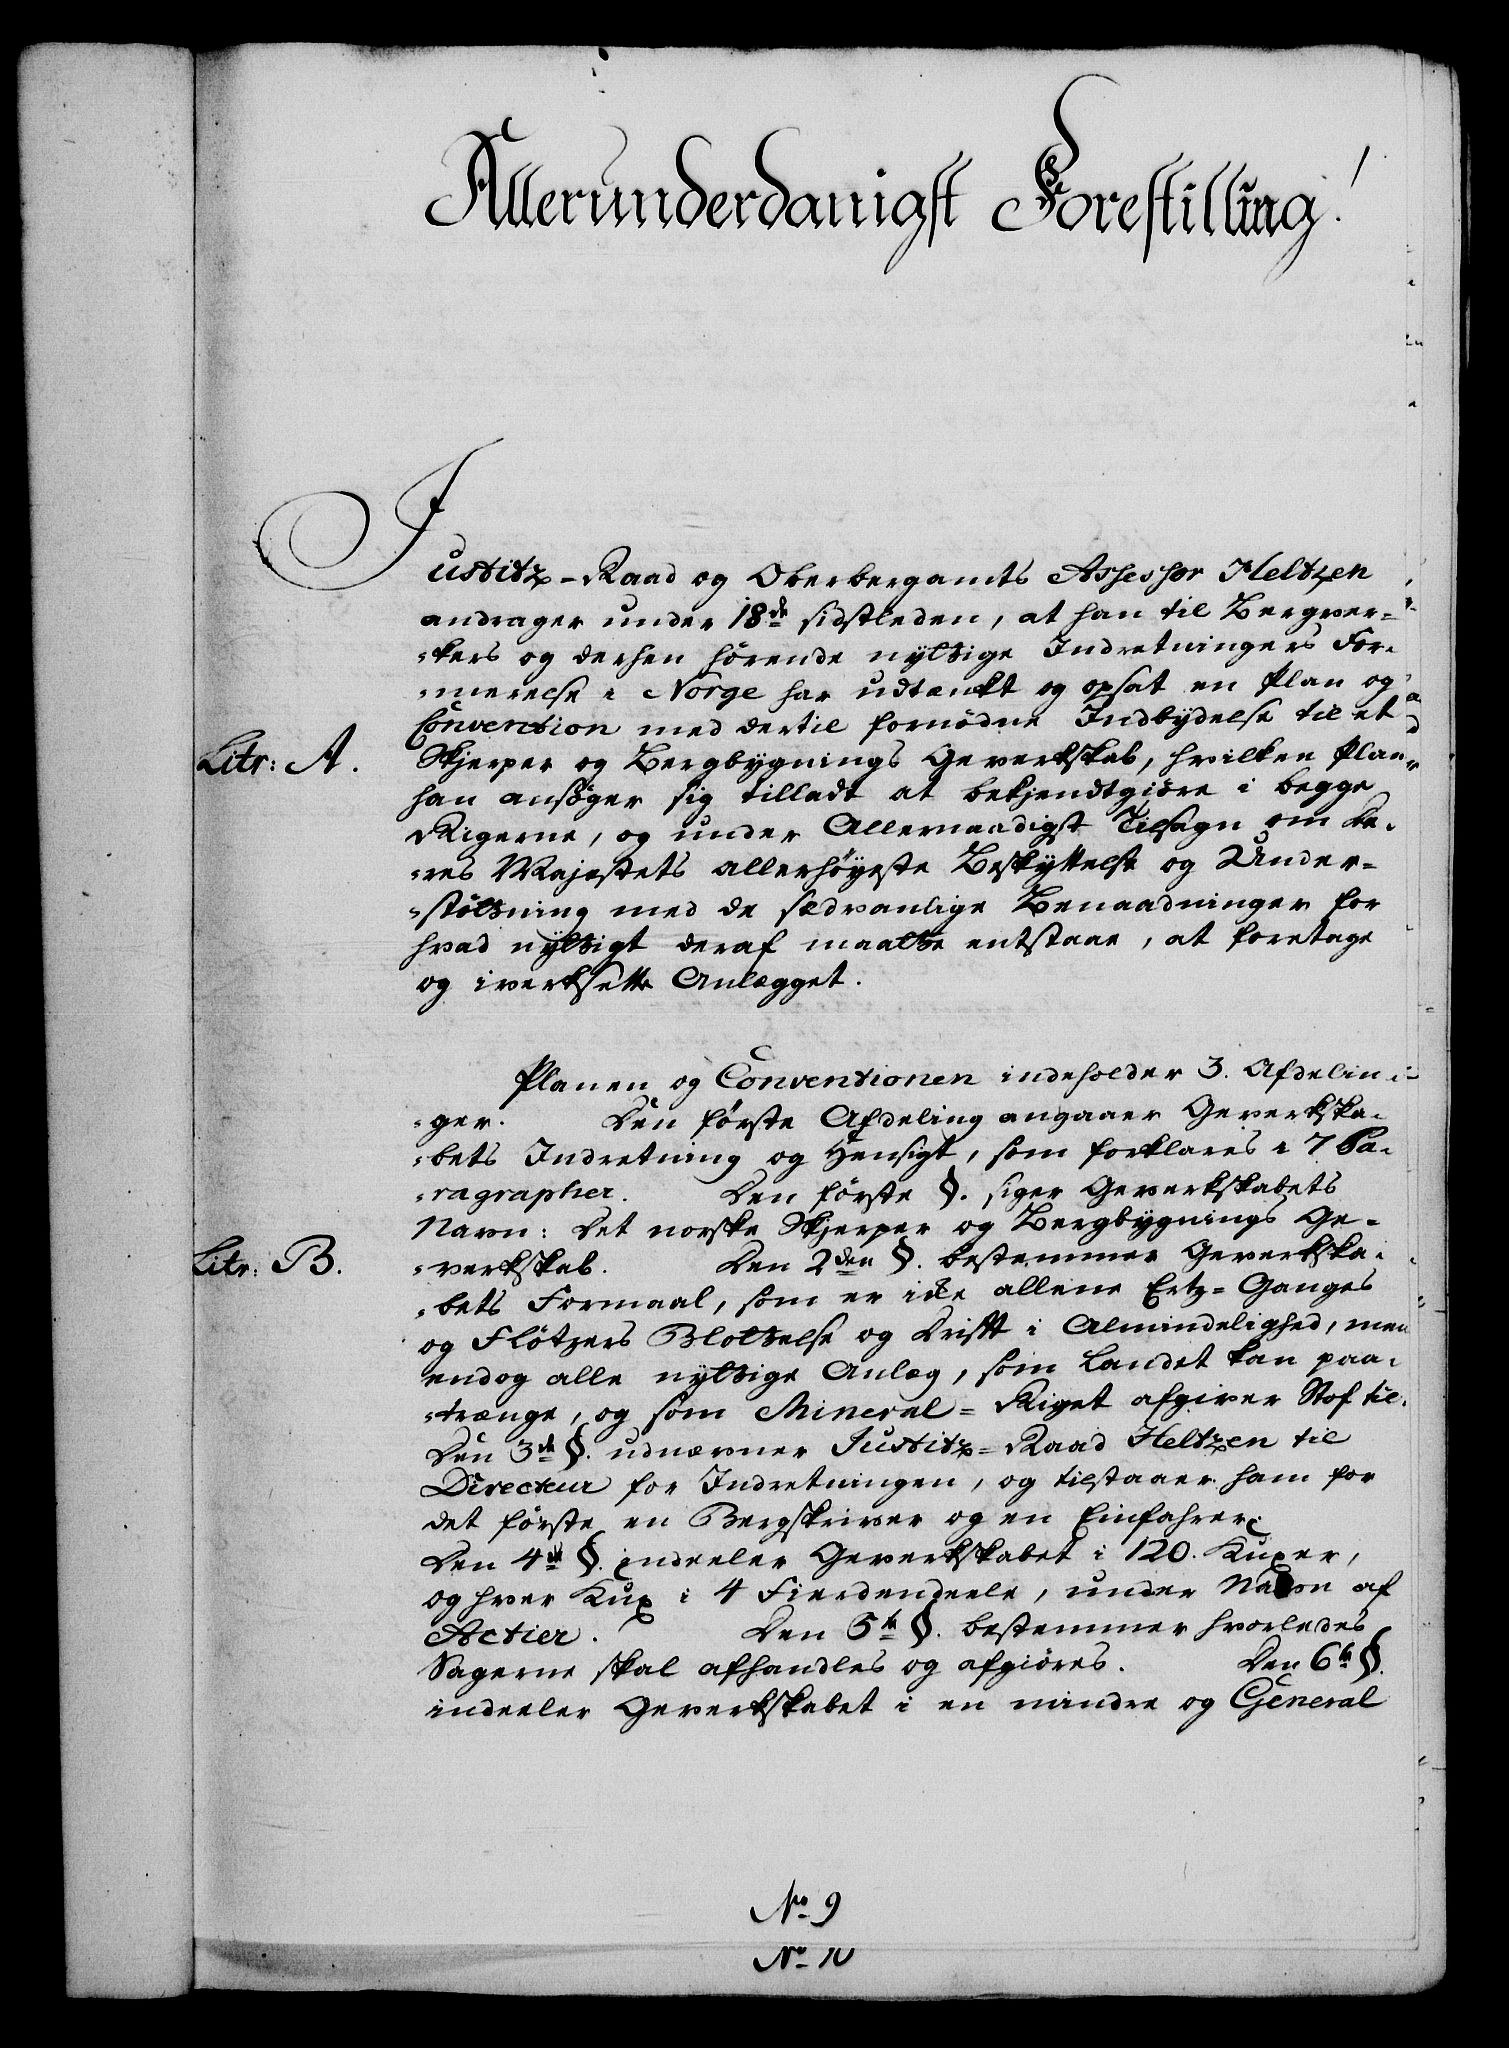 Allerunderdanigst Forestilling!
Justitz-Raad og Oberbergamts Assessor Heltzen
andrager under 18de sidstleden, at han til Bergver=
=kers og derhen hörende nyttige Indretningers For=
=merelse i Norge har udtænkt og opsat en Plan og
Convention med dertil fornödne Indbydelse til et
Litr: A.
Skjerper og Bergbygnings Gewerkskab, hvilken Plan
han ansöger sig tilladt at bekjendtgiöre i begge
Rigerne, og under Allernaadigst Tilsagn om De=
=res Majestets allerhöyeste Beskyttelse og Under=
=stöttning med de sædvanlige Benaadninger for
hvad nyttigt deraf maatte entstaae, at foretage
og iverksette Anlegget.
Planen og Conventionen indeholder 3. Afdelin=
=ger. Den förste Afdeling angaaer Gewerkska=
=bets Indretning og Hensigt, som forklares i 7 Pa=
=ragrapher. Den förste §. siger Gewerkskabets
Navn: Det norske Skjerper og Bergbygnings Ge=
Litr: B.
=werkskab. Den 2den §. bestemmer Gewerkska=
=bets Formaal, som er icke allene Ertz=Ganges
og Flötzers Blottelse og Drift i Almindelighed, men
endog alle nyttige Anleg, som Landet kan paa=
=trænge, og som Mineral=Riget afgiver Stof til.
Den 3de §. udnævner Justitz=Raad Heltzen til
Directeur for Indretningen, og tilstaaer ham for
det förste en Bergskriver og en Einfahrer.
Den 4de §. indeeler Gewerkskabet i 120. Kuxer,
og hver Kux i 4 Fierdendeele, under Navn af
Actier. Den 5te §. bestemmer hvorledes
Sagerne skal afhandles og afgiöres. Den 6te §.
indeeler Gewerkskabet i en mindre og General
No 9
No 10